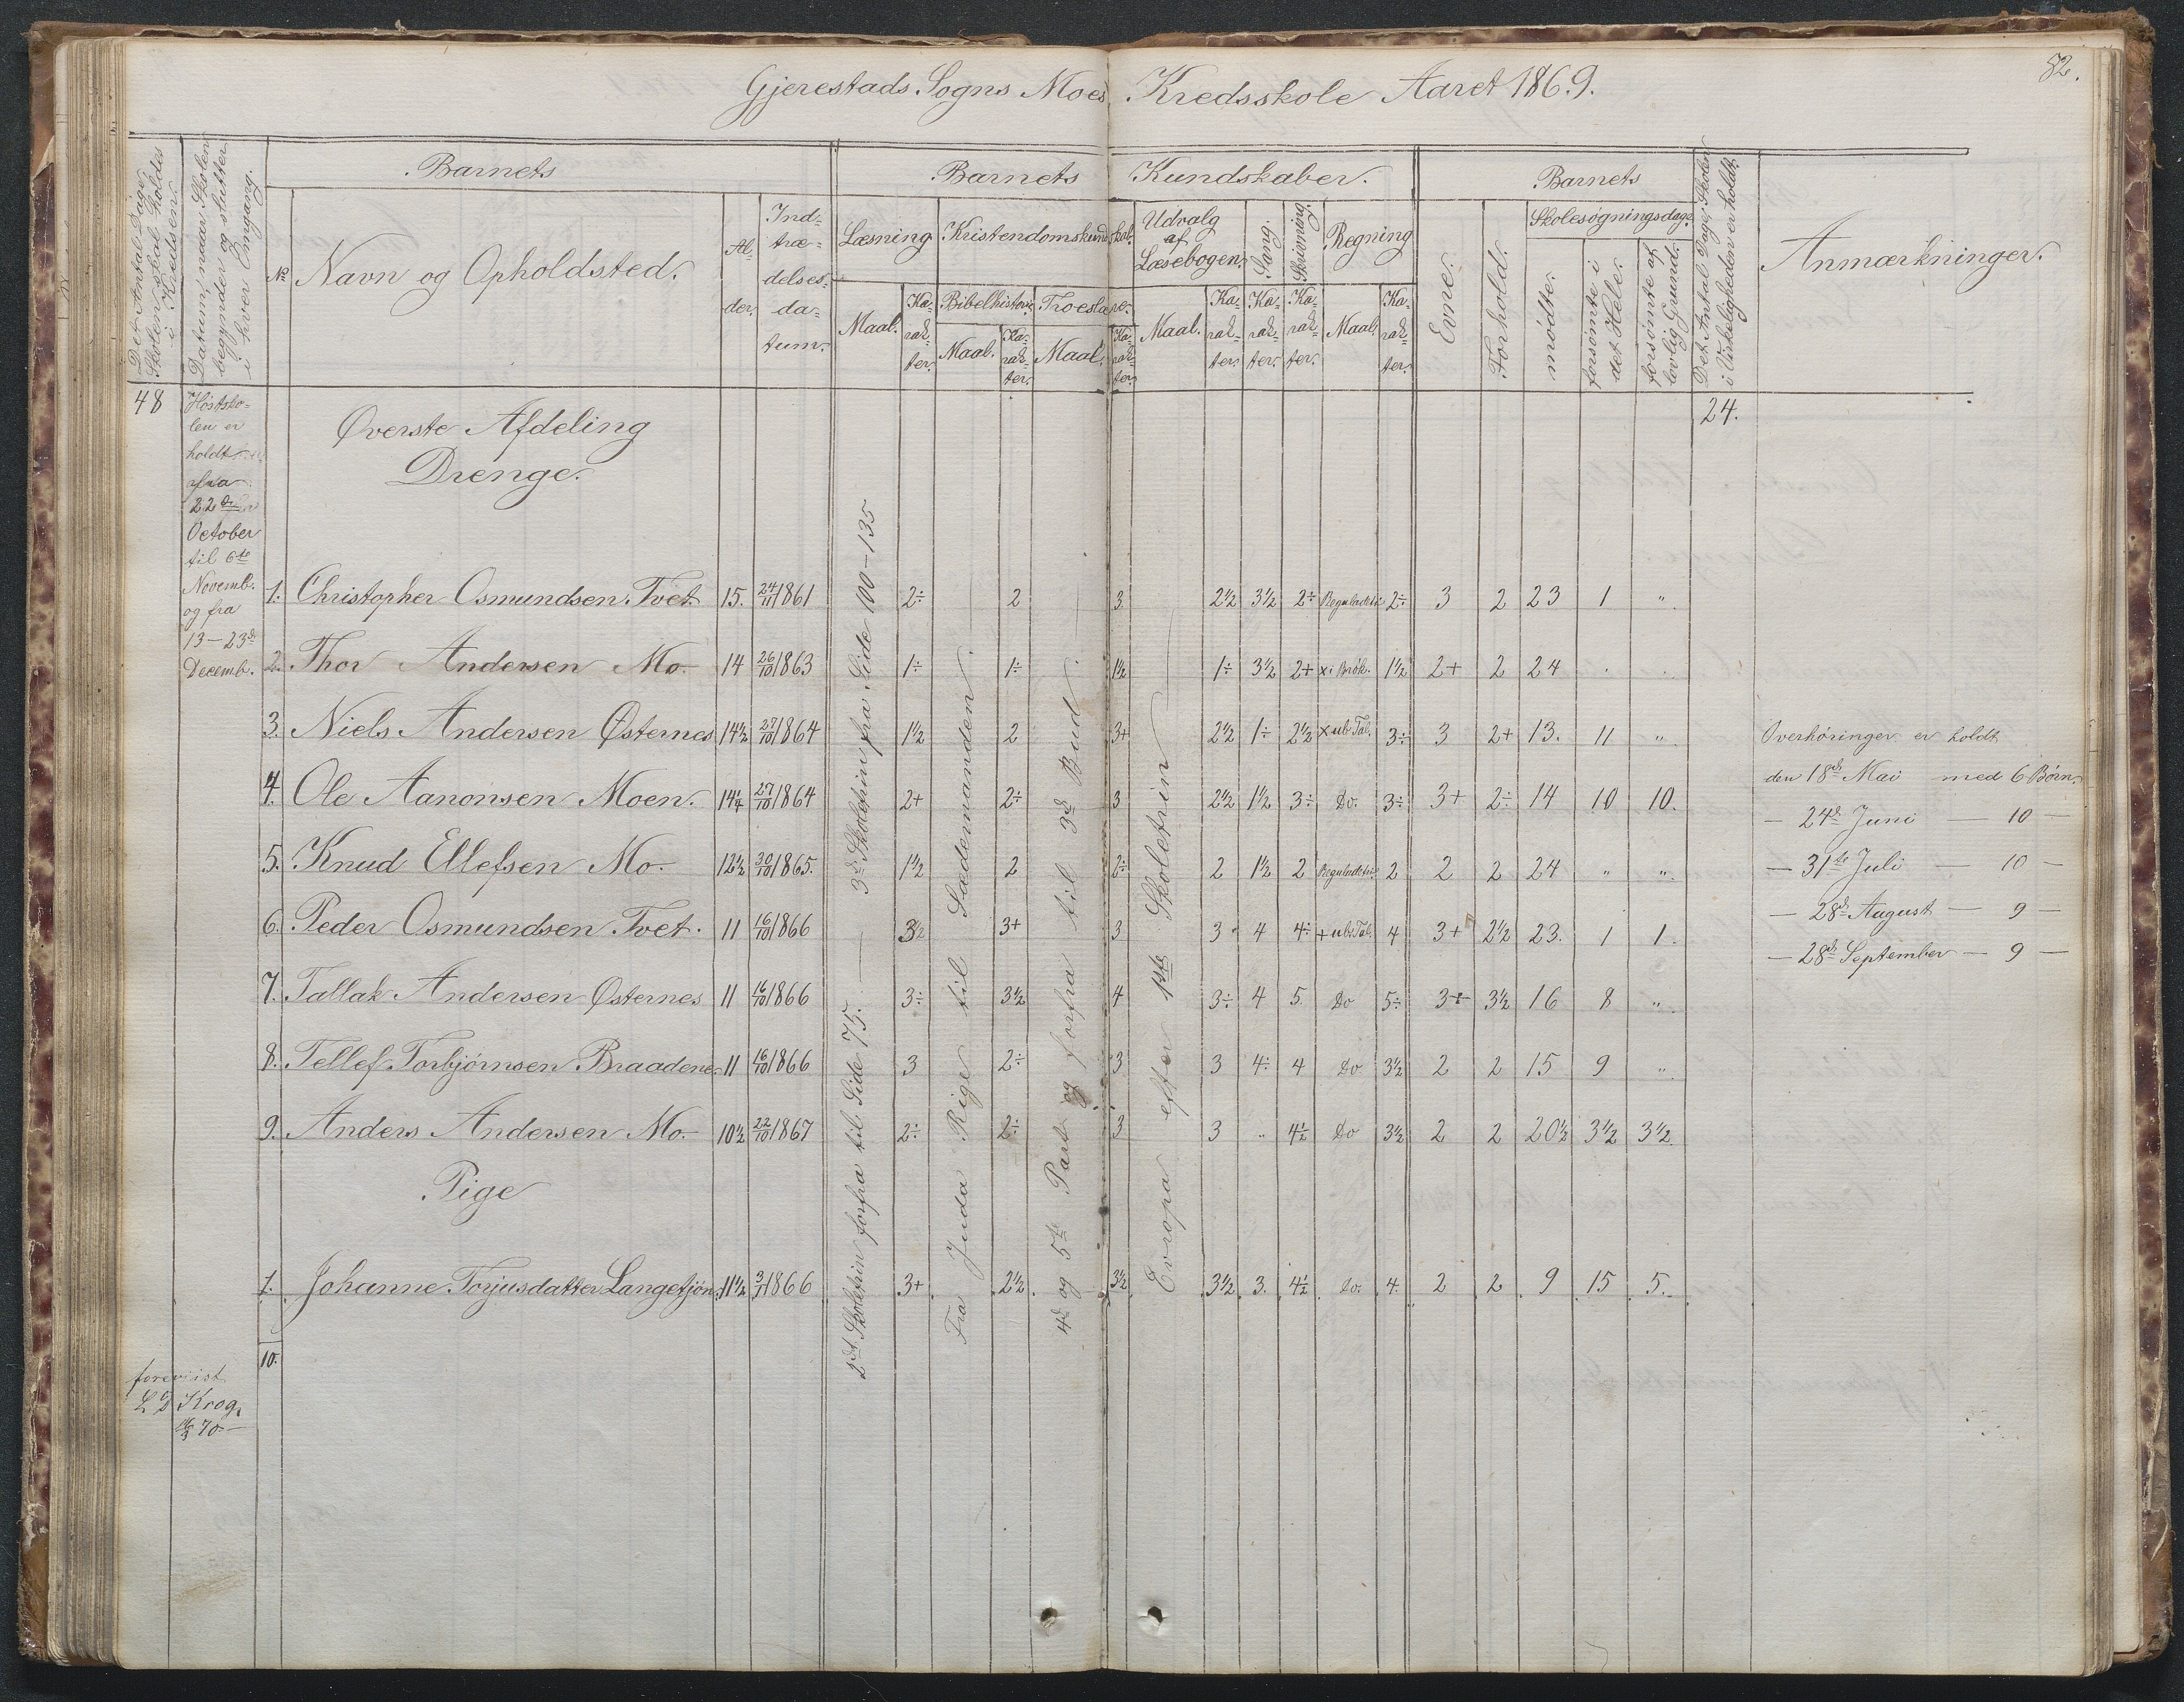 82.
Gjerestads Sogns Moes Kredsskole Aaret 1869.
Det Antal Dage Skolen skal holdes i Kredsen.
Datum, naar Skolen begynder og slutter i hver Omgang.
Barnets
No
Navn og Opholdsted.
Al-der.
Ind-træ-delses-da-tum.
Barnets Kundskaber.
Læsning
Maal.
Ka-rak-ter.
Kristendomskundskab.
Bibelhistorie
Maal.
Ka-rak-ter.
Troeslære.
Maal.
Ka-rak-ter.
Udvalg af Læsebogen.
Maal.
Ka-rak-ter.
Sang.
Ka-rak-ter.
Skrivning.
Ka-rak-ter.
Regning
Maal.
Ka-rak-ter.
Barnets
Evne.
Forhold.
Skolesøgningsdage.
mødte.
forsømte i det Hele.
forsømte af lovlig Grund.
Det Antal Dage Skolen i Virkeligheden er holdt.
Anmærkninger.
48
Høstsko-
len er
holdt
fra
22de
October
til 6te
Novemb.
og fra
13-23de
Decemb.
24.
Øverste Afdeling
Drenge.
1. Christopher Osmundsen Tvet. 15. 24/11 1861 2÷ 2 3 2½ 3½ 2÷ Reguladetri 2÷ 3 2 23 1 "
2. Thor Andersen Mo. 14 26/10 1863 1÷ 1÷ 1½ 1÷ 3½ 2+ x i Brøk. 1½ 2+ 2 24 . .
3. Niels Andersen Østernes 14½ 27/10 1864 1½ 2 3+ 2½ 1÷ 2½ x ub Tal. 3÷ 3 2+ 13. 11 "
4. Ole Aanonsen Moen. 14¼ 27/10 1864 2+ 2÷ 3 2½ 1½ 3÷ Do. 3÷ 3+ 2÷ 14 10 10.
5. Knud Ellefsen Mo. 12½ 30/10 1865. 1½ 2 2÷ 2 1½ 2 Reguladetri 2 2 2 24 " "
6. Peder Osmundsen Tvet. 11 16/10 1866 3½ 3+ 3 3 4 4÷ + ub Tal. 4 3+ 2½ 23. 1 1.
7. Tallak Andersen Østernes 11 16/10 1866 3÷ 3½ 4 3÷ 4 5 Do 5÷ 3+ 3½ 16 8 "
8. Tellef Torbjørnsen Braadene 11 16/10 1866 3 2÷ 3 3 4÷ 4 Do 3½ 2 2 15 9 "
9. Anders Andersen Mo. 10½ 22/10 1867 2÷ 2÷ 3 3 " 4½ Do 3½ 2 2 20½ 3½ 3½.
Pige
1. Johanne Torjusdatter Langetjøn. 11½ 3/1 1866 3+ 2½ 3½ 3½ 3. 4½ Do. 4. 2 2 9 15 5.
10.
2det Skoletrin forfra til Side 75. — 3de Skoletrin fra Side 100-135
Fra Juda Rige til Sædemanden.
4de og 5te Part og forfra til 3de Bud.
Evropa efter 1ste Skoletrin
Overhøringer er holdt
den 18de Mai med 6 Børn.
— 24de Juni — 10 —
— 31te Juli — 10 —
— 28de August — 9 —
— 28de September — 9 —
foreviist
Krog.
16/3 70.